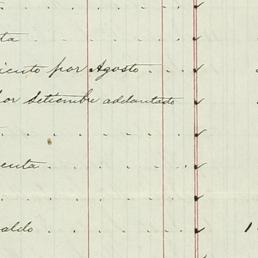 ta
iento por Agosto
por Setiembre adelantado
enta
aldo
1